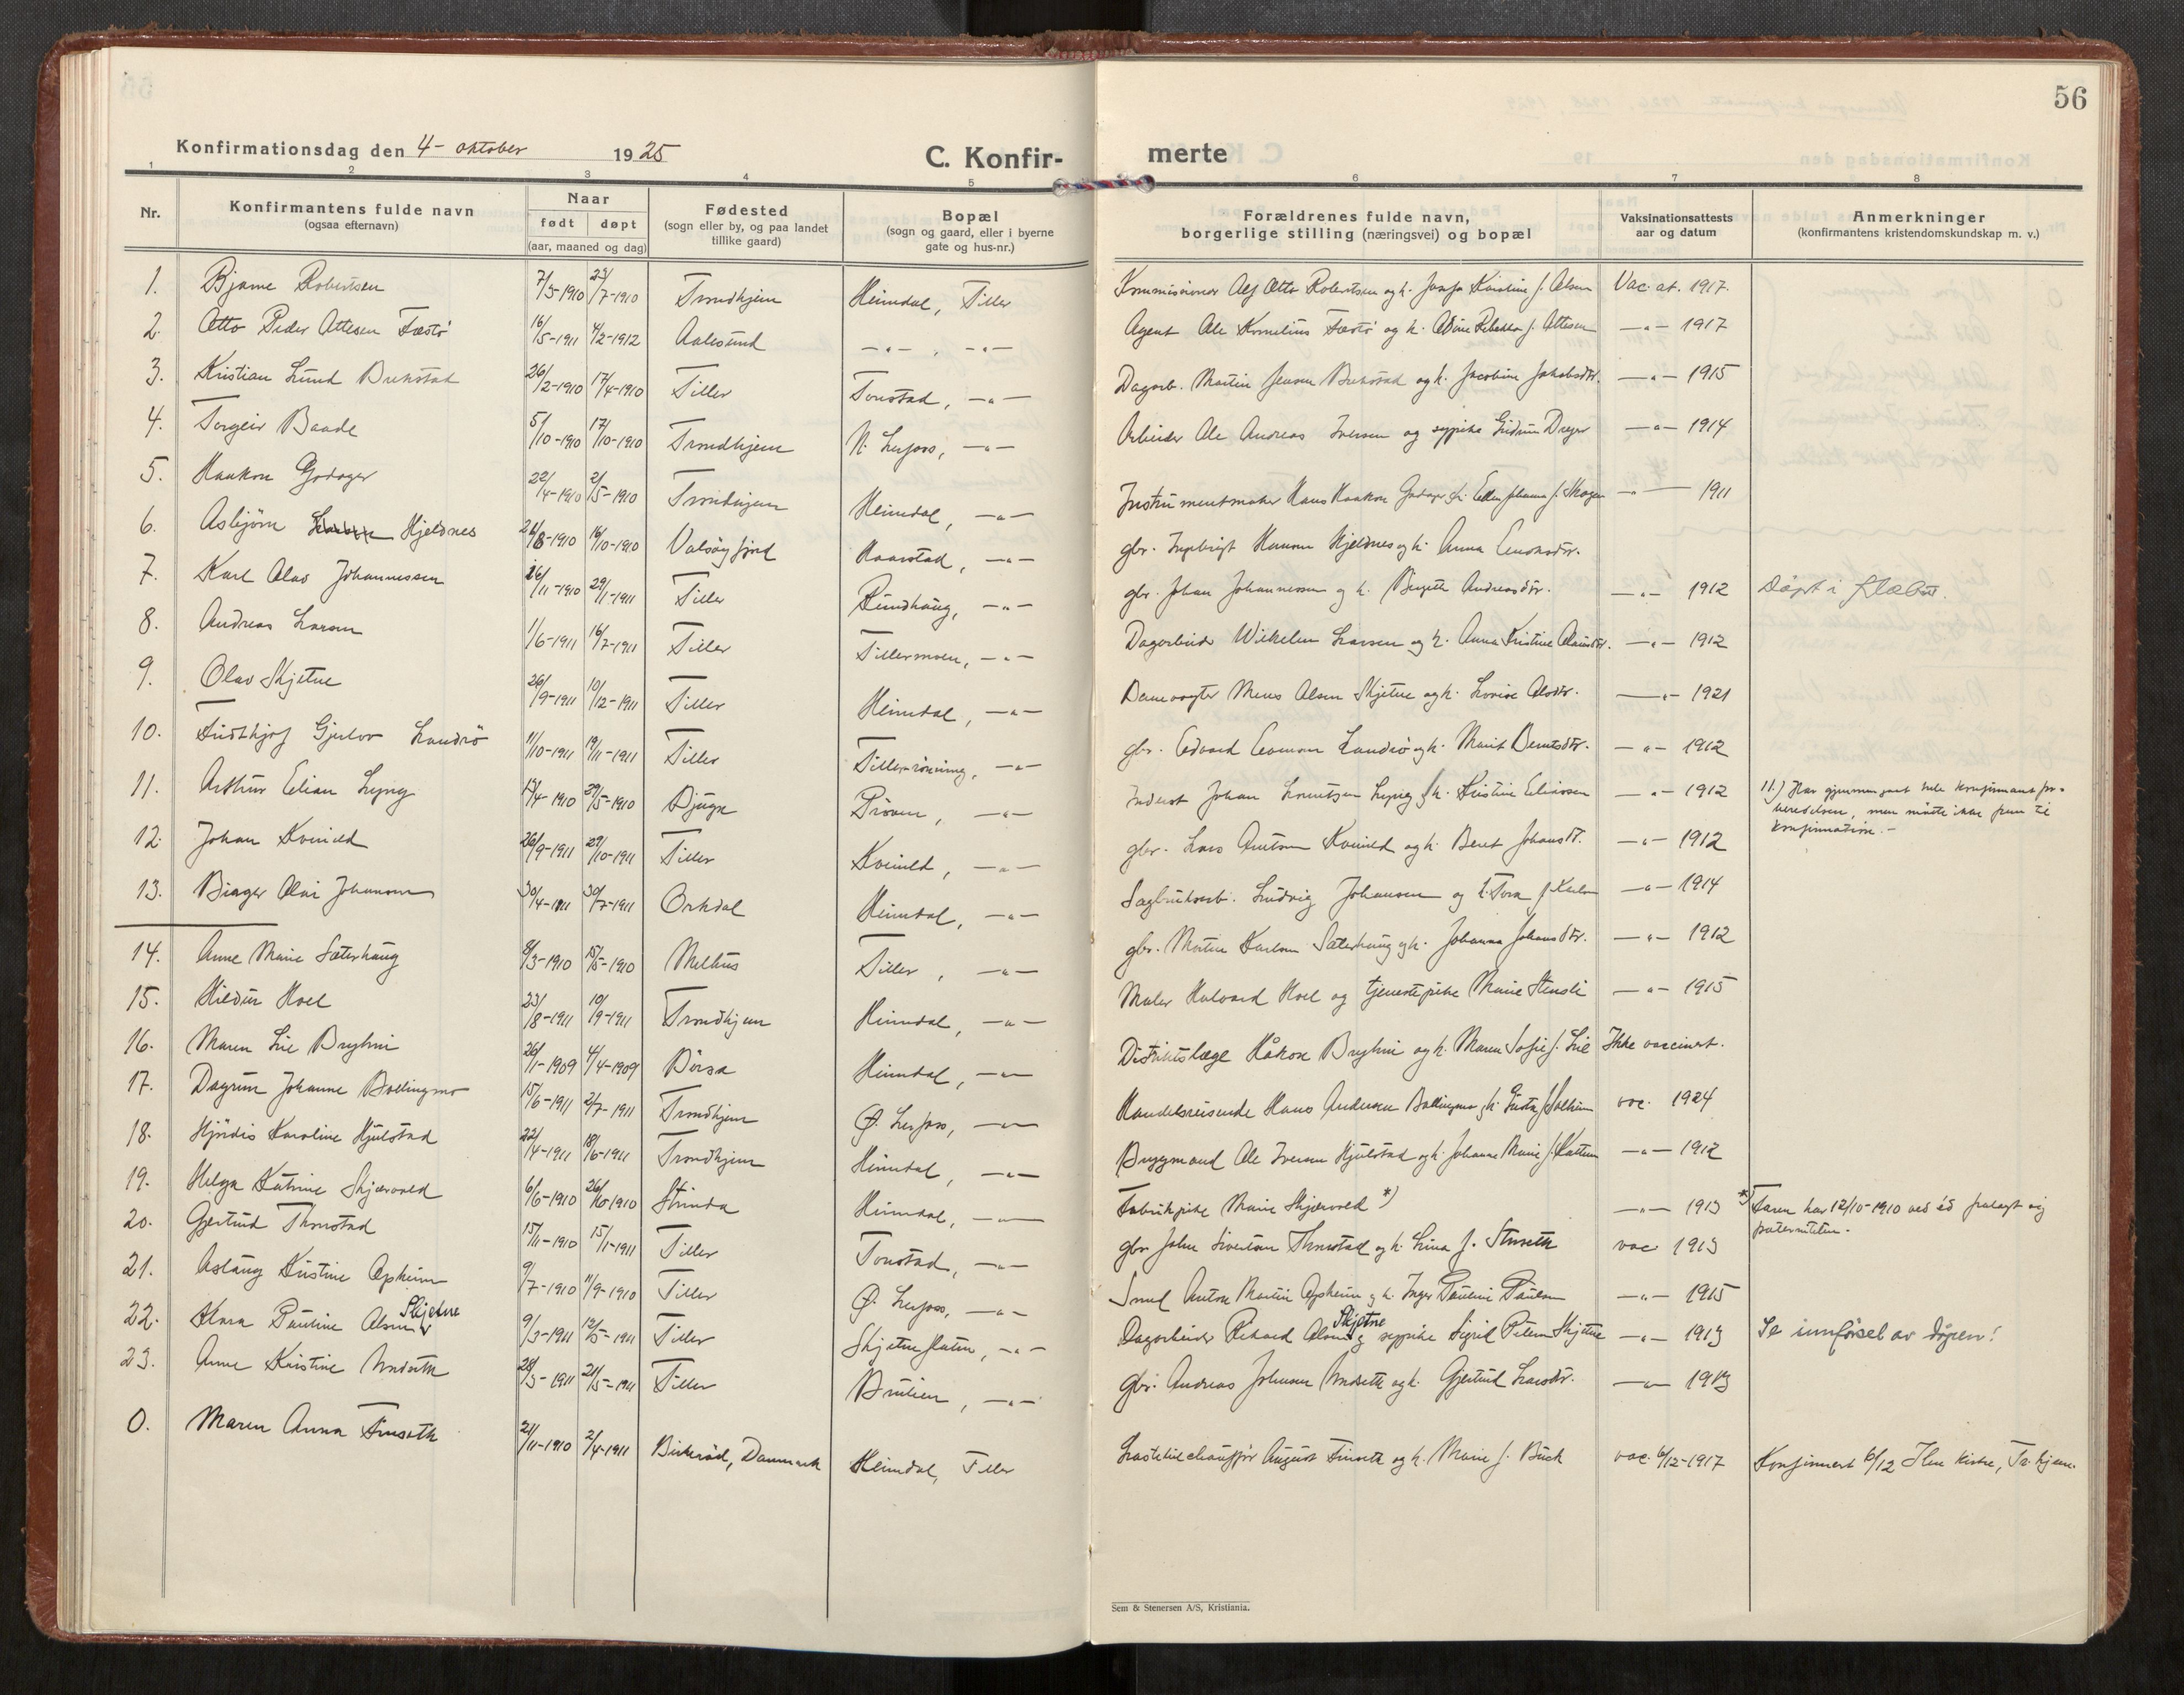 56
Konfirmationsdag den 4- oktober 1925
C. Konfir-
merte
1 2 3 4 5 6 7 8
Nr.
Konfirmantens fulde navn
(ogsaa efternavn)
Naar
født døpt
(aar, maaned og dag)
Fødested
(sogn eller by, og paa landet
tillike gaard)
Bopæl
(sogn og gaard, eller i byerne
gate og hus-nr.)
Forældrenes fulde navn,
borgerlige stilling (næringsvei) og bopæl
Vaksinationsattests
aar og datum
Anmerkninger
(konfirmantens kristendomskundskap m. v.)
1. Bjarne Robertsen 7/3-1910 23/7-1910 Trondhjem Heimdal, Tiller Otto Robertsen og h. Vac. at. 1917.
2. Otto Peder Ottesen Fæstö 16/5-1911 4/2-1912 Aalesund -"-, -"- Agent Ole Kornelius Fæstö og h. Rebekka f. Ottesen -"- 1917
3. Kristian Lund Brekstad 26/2-1910 17/4-1910 Tiller Tonstad, -"- Dagarb. Martin Jensen Brekstad og h. Jacobine Jakobsdtr. -"- 1915
4. Torgeir Baade 5/10-1910 17/10-1910 Trondhjem N. Lerfoss, -"- Arbeider Ole Andreas Iversen og Dreyer -"- 1914
5. Haakon Godager 22/4-1910 2/5-1910 Trondhjem Heimdal, -"- Instrumentmaker Hans Haakon Godager h. Ellen Johanna f. Skogen -"- 1911
6. Asbjörn Hjeldnes 21/8-1910 16/10-1910 Valsöyfjord Kaarstad, -"- gbr. Ingebrigt Hansen Hjeldnes og h. Anna
7. Karl Olav Johannessen 26/11-1910 29/1-1911 Tiller Rundhaug, -"- gbr. Johan Johannessen og h. Andreasdtr. -"- 1912 Döpt i Klæbu.
8. Andreas Larsen 1/6-1911 16/7-1911 Tiller Tillermoen, -"- Dagarbeider Wilhelm Larsen og h. Anna Kristine -"- 1912
9. Olav Skjetne 26/9-1911 10/12-1911 Tiller Heimdal, -"- Banevogter Olsen Skjetne og h. Lovise Olsdtr. -"- 1921
10. Fridthjof Gjulov Landrö 11/10-1911 19/11-1911 Tiller Tiller-rönning, -"- gbr. Edvard Landrö og h. Marit Berntsdtr. -"- 1912
11. Arthur Elian Lyng 17/4-1910 29/5-1910 Bjugn Pröven, -"- Johan Lorentsen Lyng h. Kristine Eliassen -"- 1912 11.) Har gjennemgaat hele konfirmantfor-
beredelsen, men mötte ikke frem til
konfirmation.-
12. Johan Kvineld 26/9-1911 29/10-1911 Tiller Kvineld, -"- gbr. Lars Kvineld og h. Beret Johansdtr. -"- 1912
13. Birger Olai Johansen 30/4-1911 30/7-1911 Orkdal Heimdal, -"- Sagbruksarb. Ludvig Johansen og h. Tora -"- 1914
14. Anne Marie Sæterhaug 8/3-1910 15/5-1910 Melhus Tiller, -"- gbr. Martin Karlsen Sæterhaug og h. Johanna Johansdtr. -"- 1912
15. Hildur Hoel 23/8-1911 10/9-1911 Trondhjem Heimdal, -"- Maler Halvard Hoel og tjenestepike Marie Stensli -"- 1915
16. Maren Lie Bryhni 26/1-1909 4/4-1909 Börsa Heimdal, -"- Distriktslæge Håkon Bryhni og h. Maren Sofie f. Lie Ikke vaccinert.
17. Dagrun Johanne Bollingmo 15/6-1911 2/7-1911 Trondhjem Ø. Lerfoss, -"- Handelsreisende Hans Andersen Bollingmo h. f. Solheim vac. 1924
18. Hjördis Karoline Hjulstad 22/4-1911 18/6-1911 Trondhjem Heimdal, -"- Bryggmand Ole Iversen Hjulstad og h. Johanne Marie f. Kattem -"- 1912
19. Helga Katrine Skjærvold 6/6-1910 26/10-1910 Strinda Heimdal, -"- Fabrikpike Marie Skjærvold *) -"- 1913 *) Faren har 12/10-1910 ved ed fralagt sig
paterniteten.-
20. Gjertrud Thonstad 15/11-1910 15/1-1911 Tiller Tonstad, -"- gbr. John Sivertsen Thonstad og h. Lina f. vac 1913
21. Aslaug Kristine Opheim 9/7-1910 11/9-1910 Tiller Ø. Lerfoss, -"- Smed Anton Martin Opheim og h. Inger Pauline -"- 1915
22. Klara Pauline Olsen Skjetne 9/3-1911 12/5-1911 Tiller Skjetneflaten, -"- Dagarbeider Rikard Olsen Skjetne og Sigrid Petersen Skjetne -"- 1913 Se innförsel av dåpen!
23. Anne Kristine Undseth 28/3-1911 21/5-1911 Tiller -"- gbr. Andreas Johnsen Undseth og h. Gjertrud Larsdtr. -"- 1913
0. Maren Anna Finseth 21/11-1910 2/4-1911 Birkeröd, Danmark Heimdal, Tiller August Finseth og h. Marie f. Buch vac. 6/12-1917 Konfirmert 6/12 Ilen kirke, Tr.hjem.
Sem & Stenersen A/S, Kristiania.